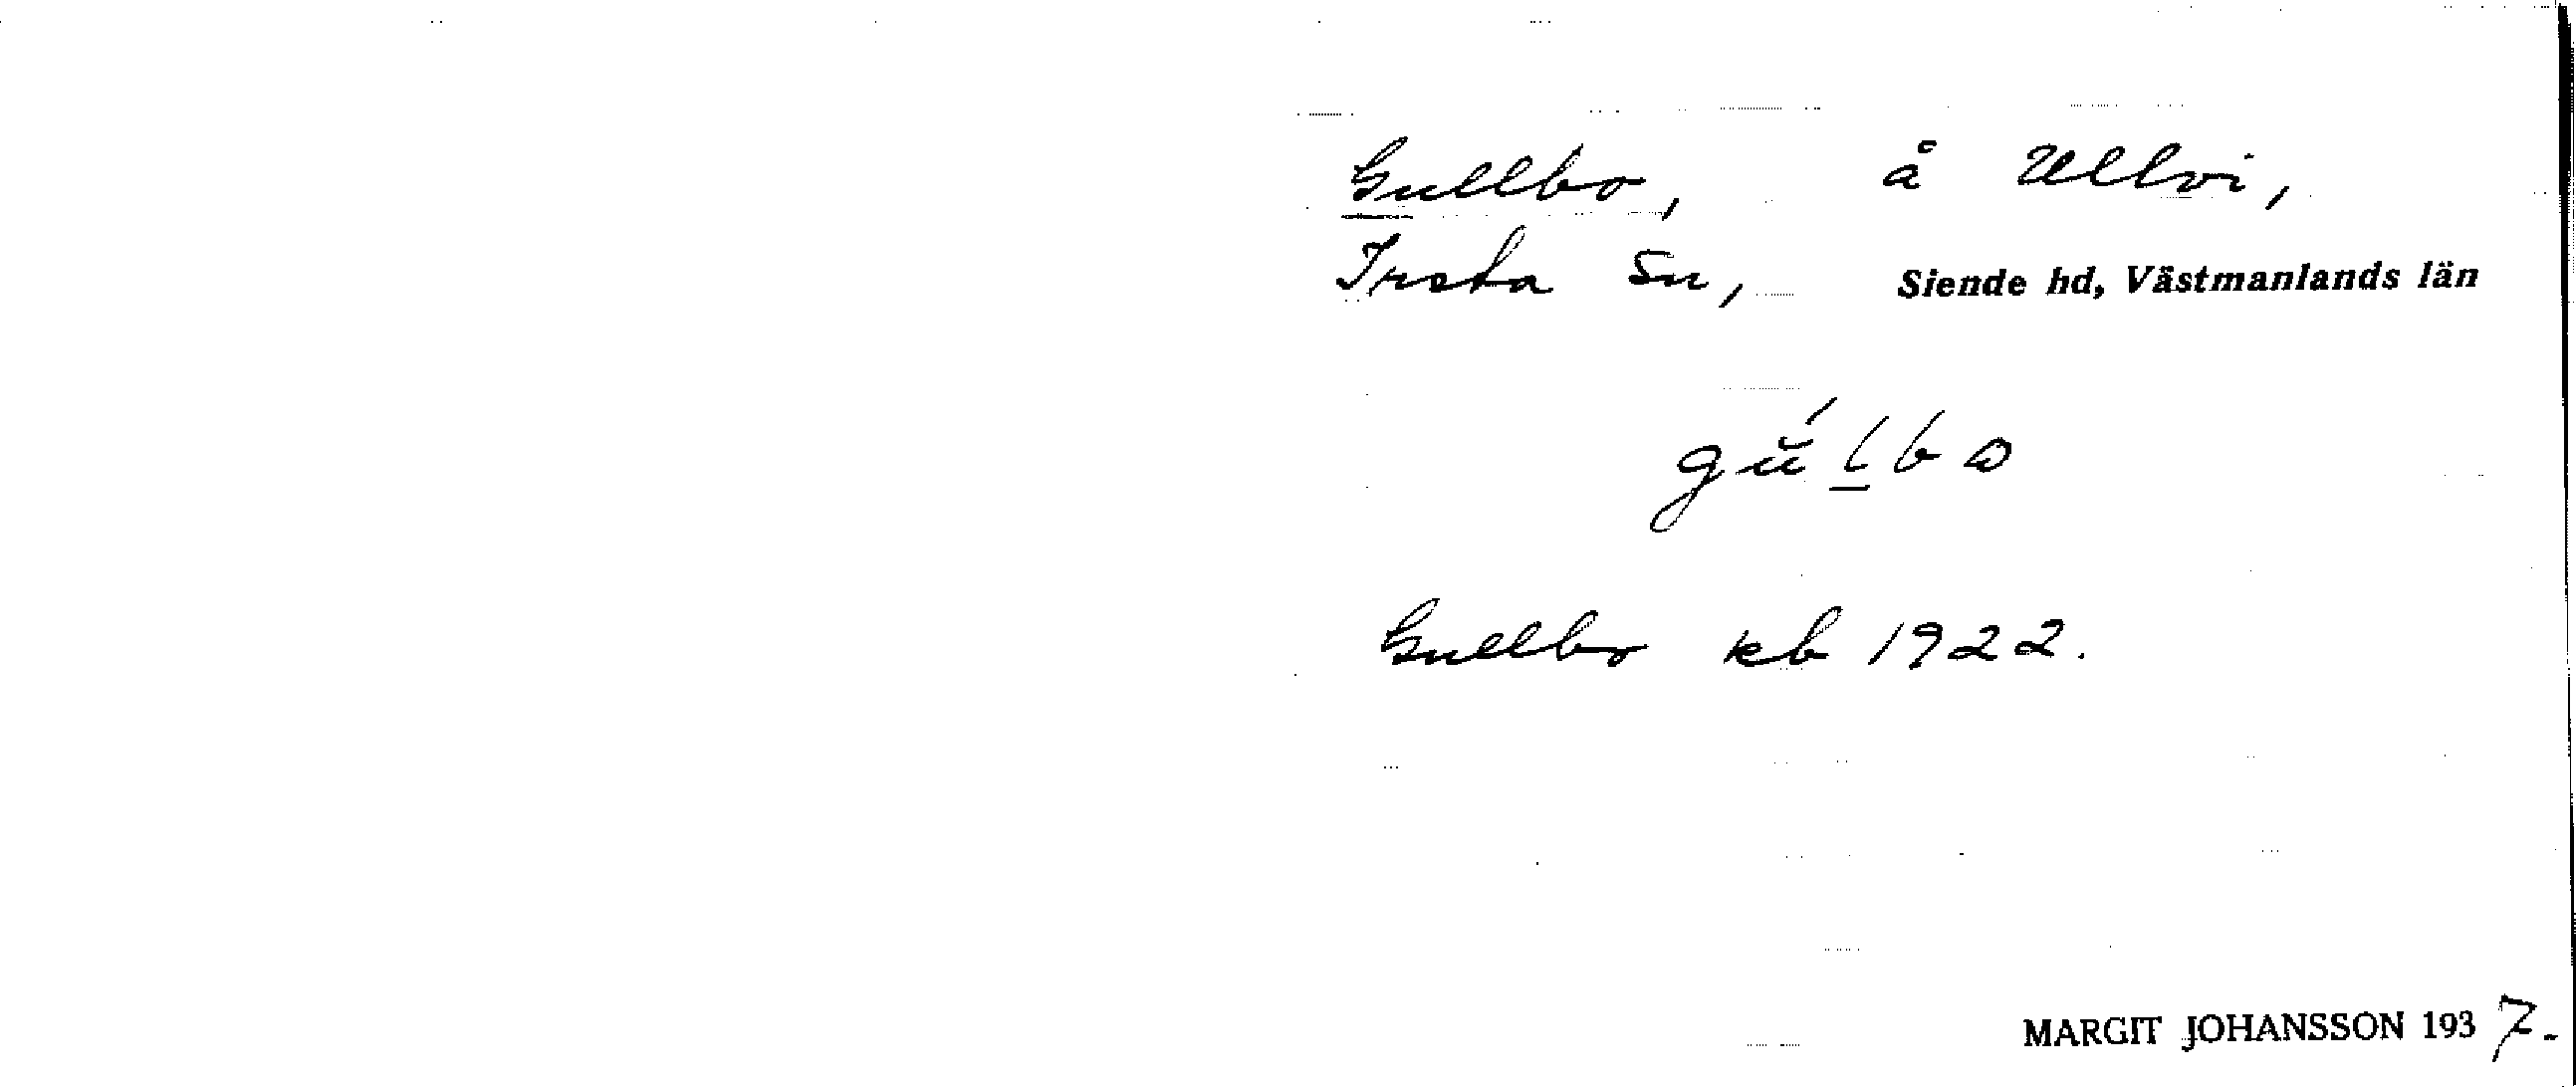 Gullbo, å Ullvi,
Irsta sn, Siende hd, Västmanlands län
Gullbo kb 1922.
MARGIT JOHANSSON 1937.